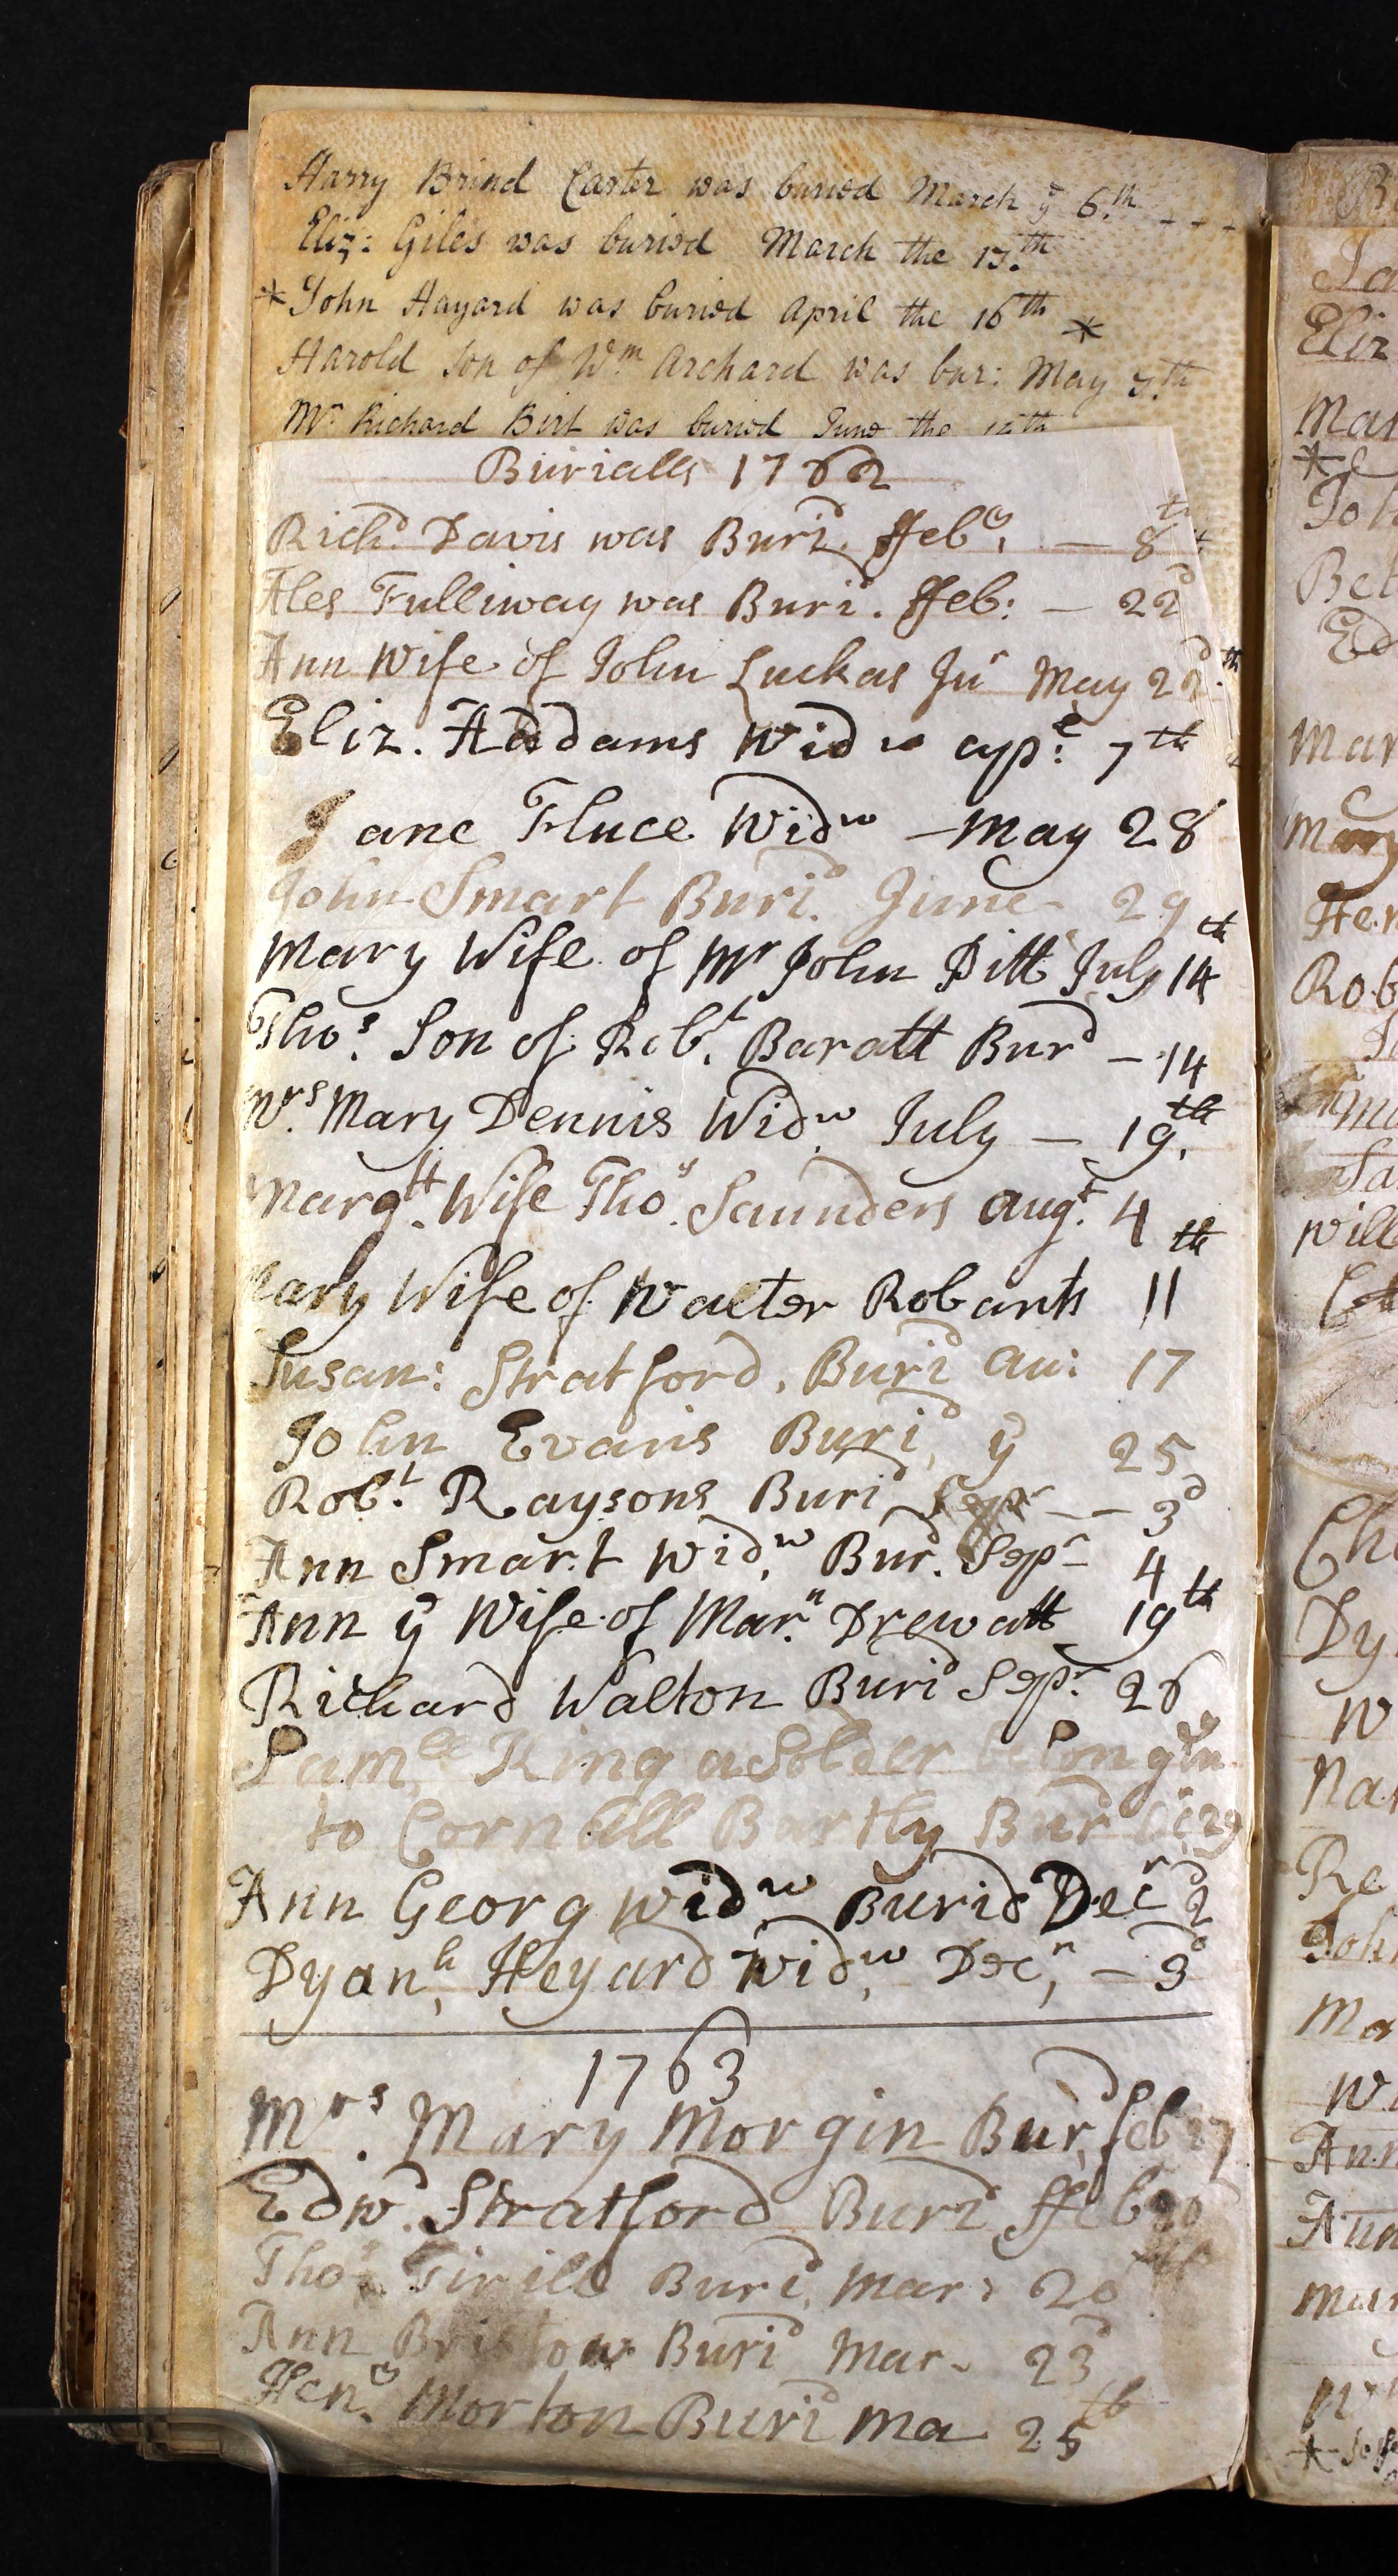 Harry Brind Carter was buried March ÿ 6.th - - -
Eliz: Giles was buried March the 17.th
* John Hayard was buried April the 16th *
Harold Son of Wm Archard was bur: May 7.th
Mr. Richard Birt was buried June the 12th
Burialls 1762
Richd. Davis was Burid. ffeby. — 8th
Ales Fulliway was Burid. ffeb: — 22d
Ann Wife of John Luckas Jur May 22d
Eliz. Addams Widw ape: 7th
Jane Fluce Widw — May 28
John Smart Burid. June 29
Mary Wife of Mr John Pitt July 14th
Thos. Son of Robt. Baratt Burd — 14
Mrs. Mary Dennis Widw. July — 19th.
Margtt. Wife Thos. Saunders augt. 4
Mary Wife of Walter Robarts 11th
Susan: Stratford. Burid au: 17
John Evans Burid, ÿ 25
Robt. Raysons Burid Sepr — — 3d
Ann Smart Widw. Burd. Sepr 4
Ann ÿ Wife of Marn. Drewatt 19th
Richard Walton Burid Sepr. 26
Samll. King a Solder belongin
to Cornall Bartly Burd 29
Ann Georg Widw Burid Decr 2d
Dyanh, Heyard Widw, Decr, — 3d
1763
Mrs. Mary Morgin Burd, feb 27
Edwd. Stratford Burid ffeb
Thos Tirild Burid, Mar: 20th
Ann Bristow Burid Mar. 23d
Heny. Morton Burid Ma 25th